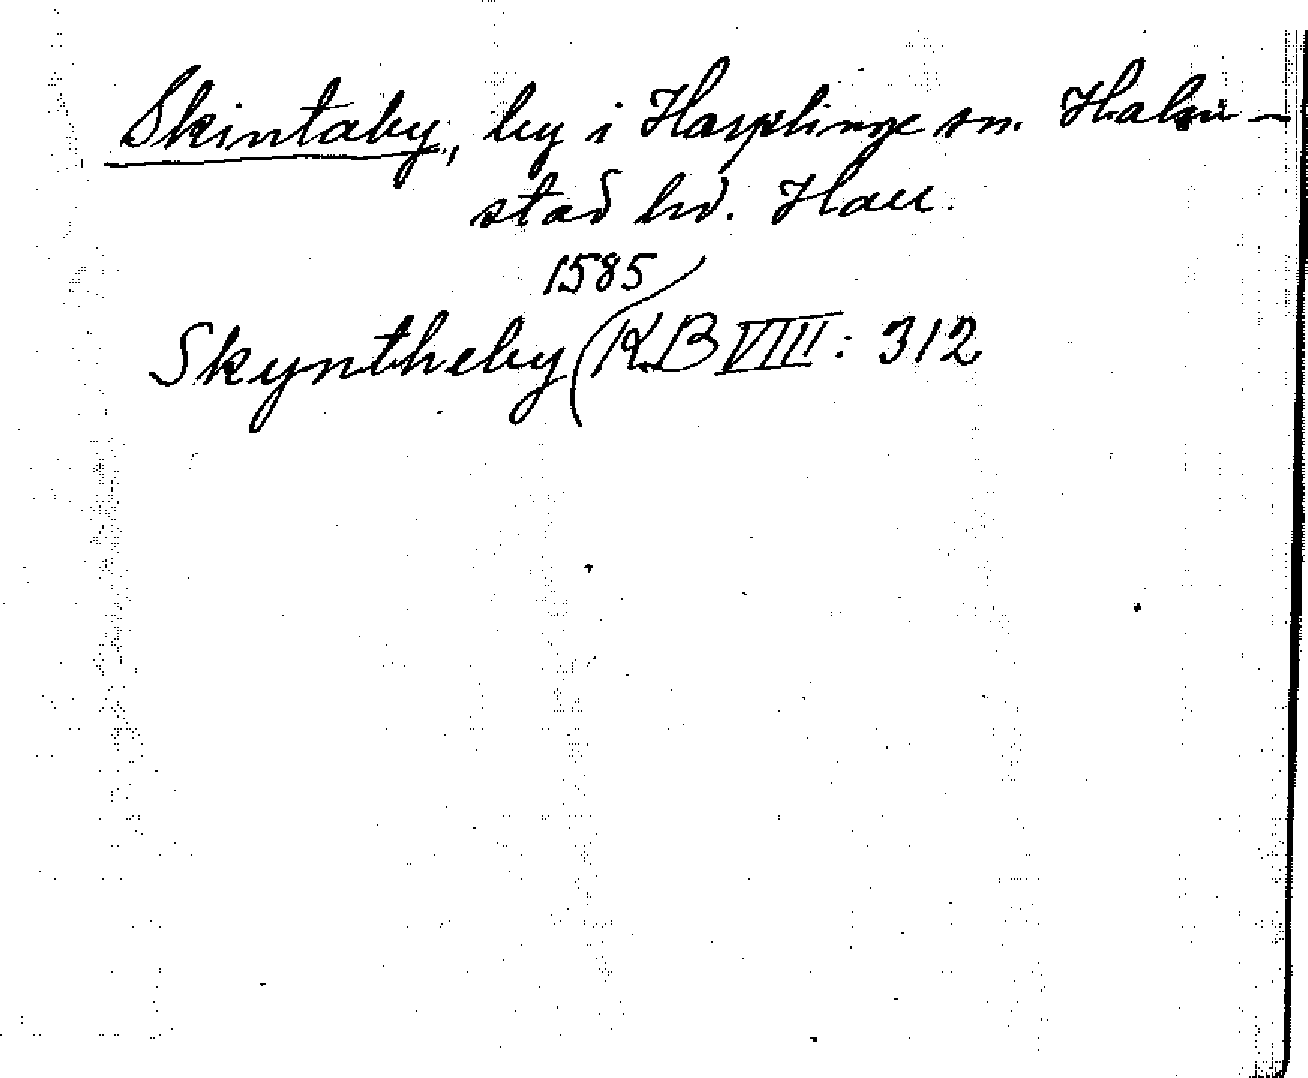 Skintaby, by i Harplinge sn. Halm-
stad hd. Hall.
1585
Skyntheby (KB VIII: 312